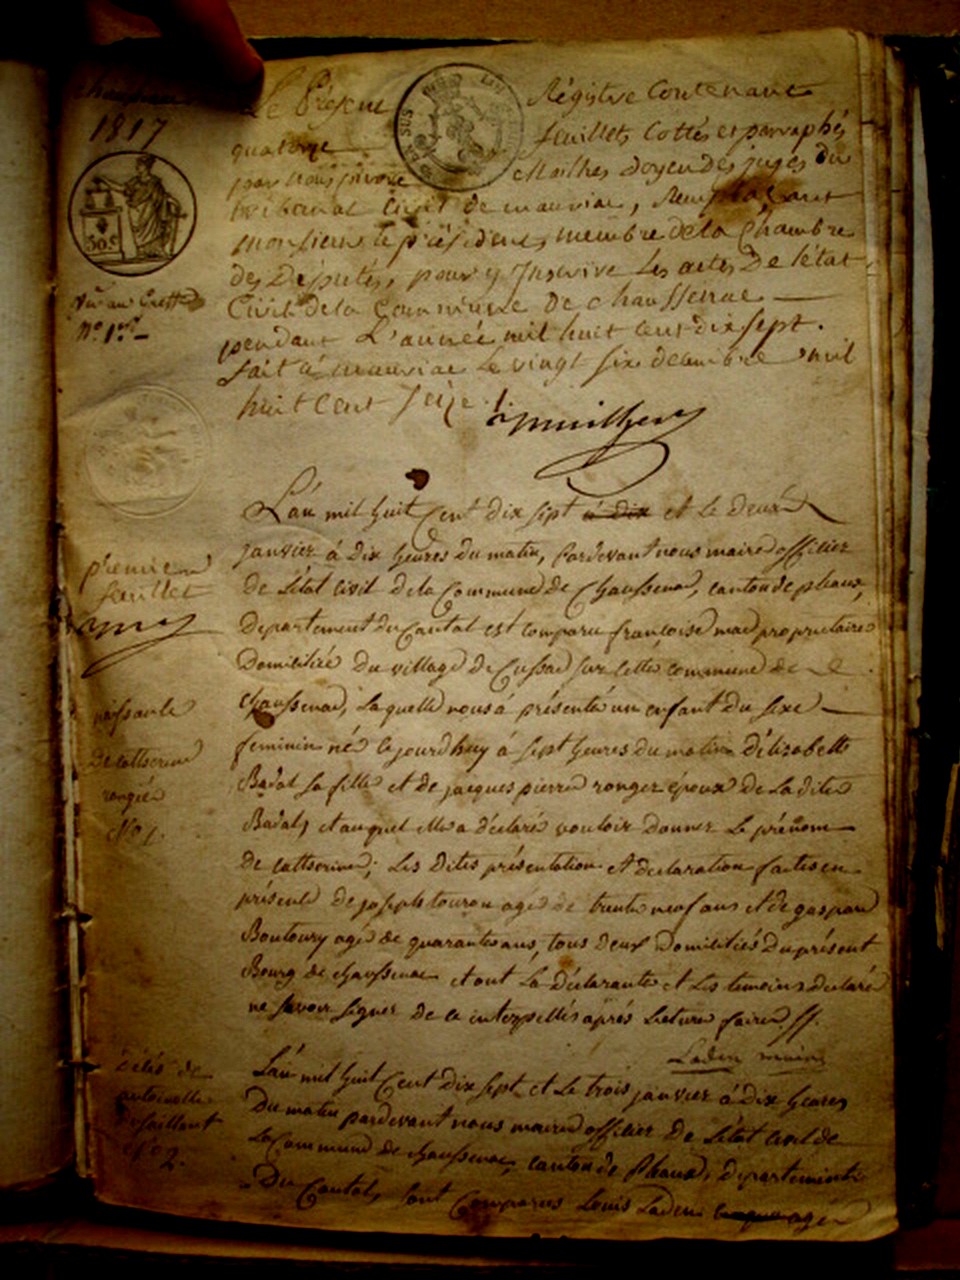 1817
Le Présent Régistre Contenant
quatorze feuillets Cottés et parraphés
par nous Mailhes Doyen des juges du
tribunal Civil de mauriac, Remplaçant
Monsieur le président, membre de la Chambre
des Députés, pour y Inscrire Les actes De l'état
Civil de la Commune De chaussenac
pendant L'année mil huit cent dix sept.
fait à mauriac Le vingt six decembre mil
huit Cent Seize.
Nº 1er
L'an mil huit Cent dix sept à dix et Le Deux
janvier à Dix heures Du matin, Pardevant nous maire officier
De L'état civil De la Commune De Chaussenac, canton de pleaux,
Departement du Cantal est comparu françoise mac propriétaire
Domiciliée Du village De Cussac sur cette commune de
chaussenac, Laquelle nous à présenté un enfant Du sexe
feminin né cejourdhuy à sept heures du matin D'élizabette
Badal sa fille et de jacques pierre rongier époux De La dite
Badal, et auquel elle a déclaré vouloir Donner Le prénom
De Catherine; Les Dites présentation et declaration faites en
présence De joseph touron agé de trente neuf ans et de gaspard
Boutoury agé de quarante ans, tous Deux Domiciliés Du présent
Bourg de chaussenac et ont La Déclarante et Les temoins declaré
ne savoir signer De ce interpellés après Lecture faite
Laden maire
premier
feuillet
naissance
De Catherine
rongier
Nº 1.
L'an mil huit Cent Dix sept et Le trois janvier à Dix heures
Du matin pardevant nous maire officier De L'état civil de
La Commune De chaussenac, canton de Pleaux, Departement
Du Cantal, sont Comparus Louis Laden agé
Décès de
antoinette
Nº 2.